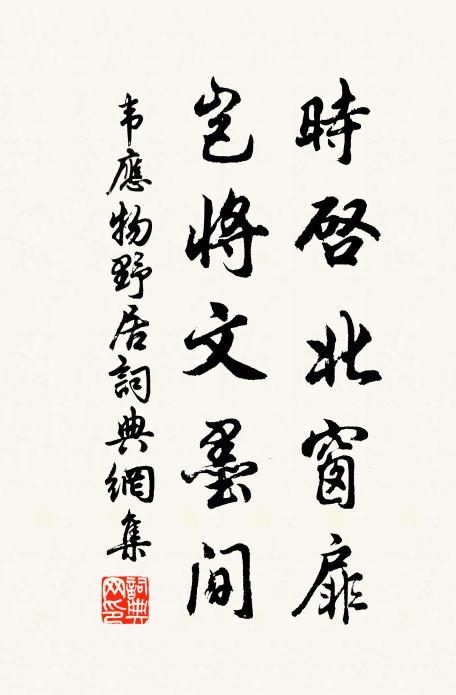 時啓北窗扉
豈將文墨间
韦應物野居詞典網集
詞典网印